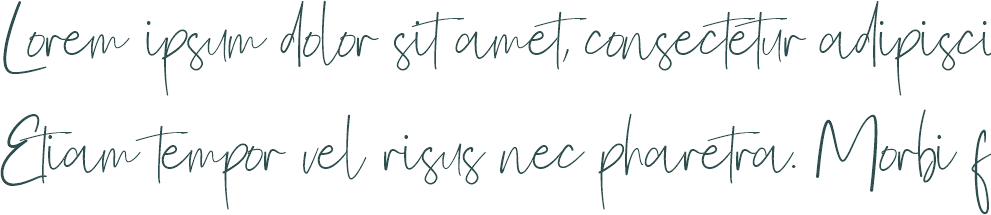 Lorem ipsum dolor sit amet, consectetur adipisci
Etiam tempor vel risus nec pharetra. Morbi f